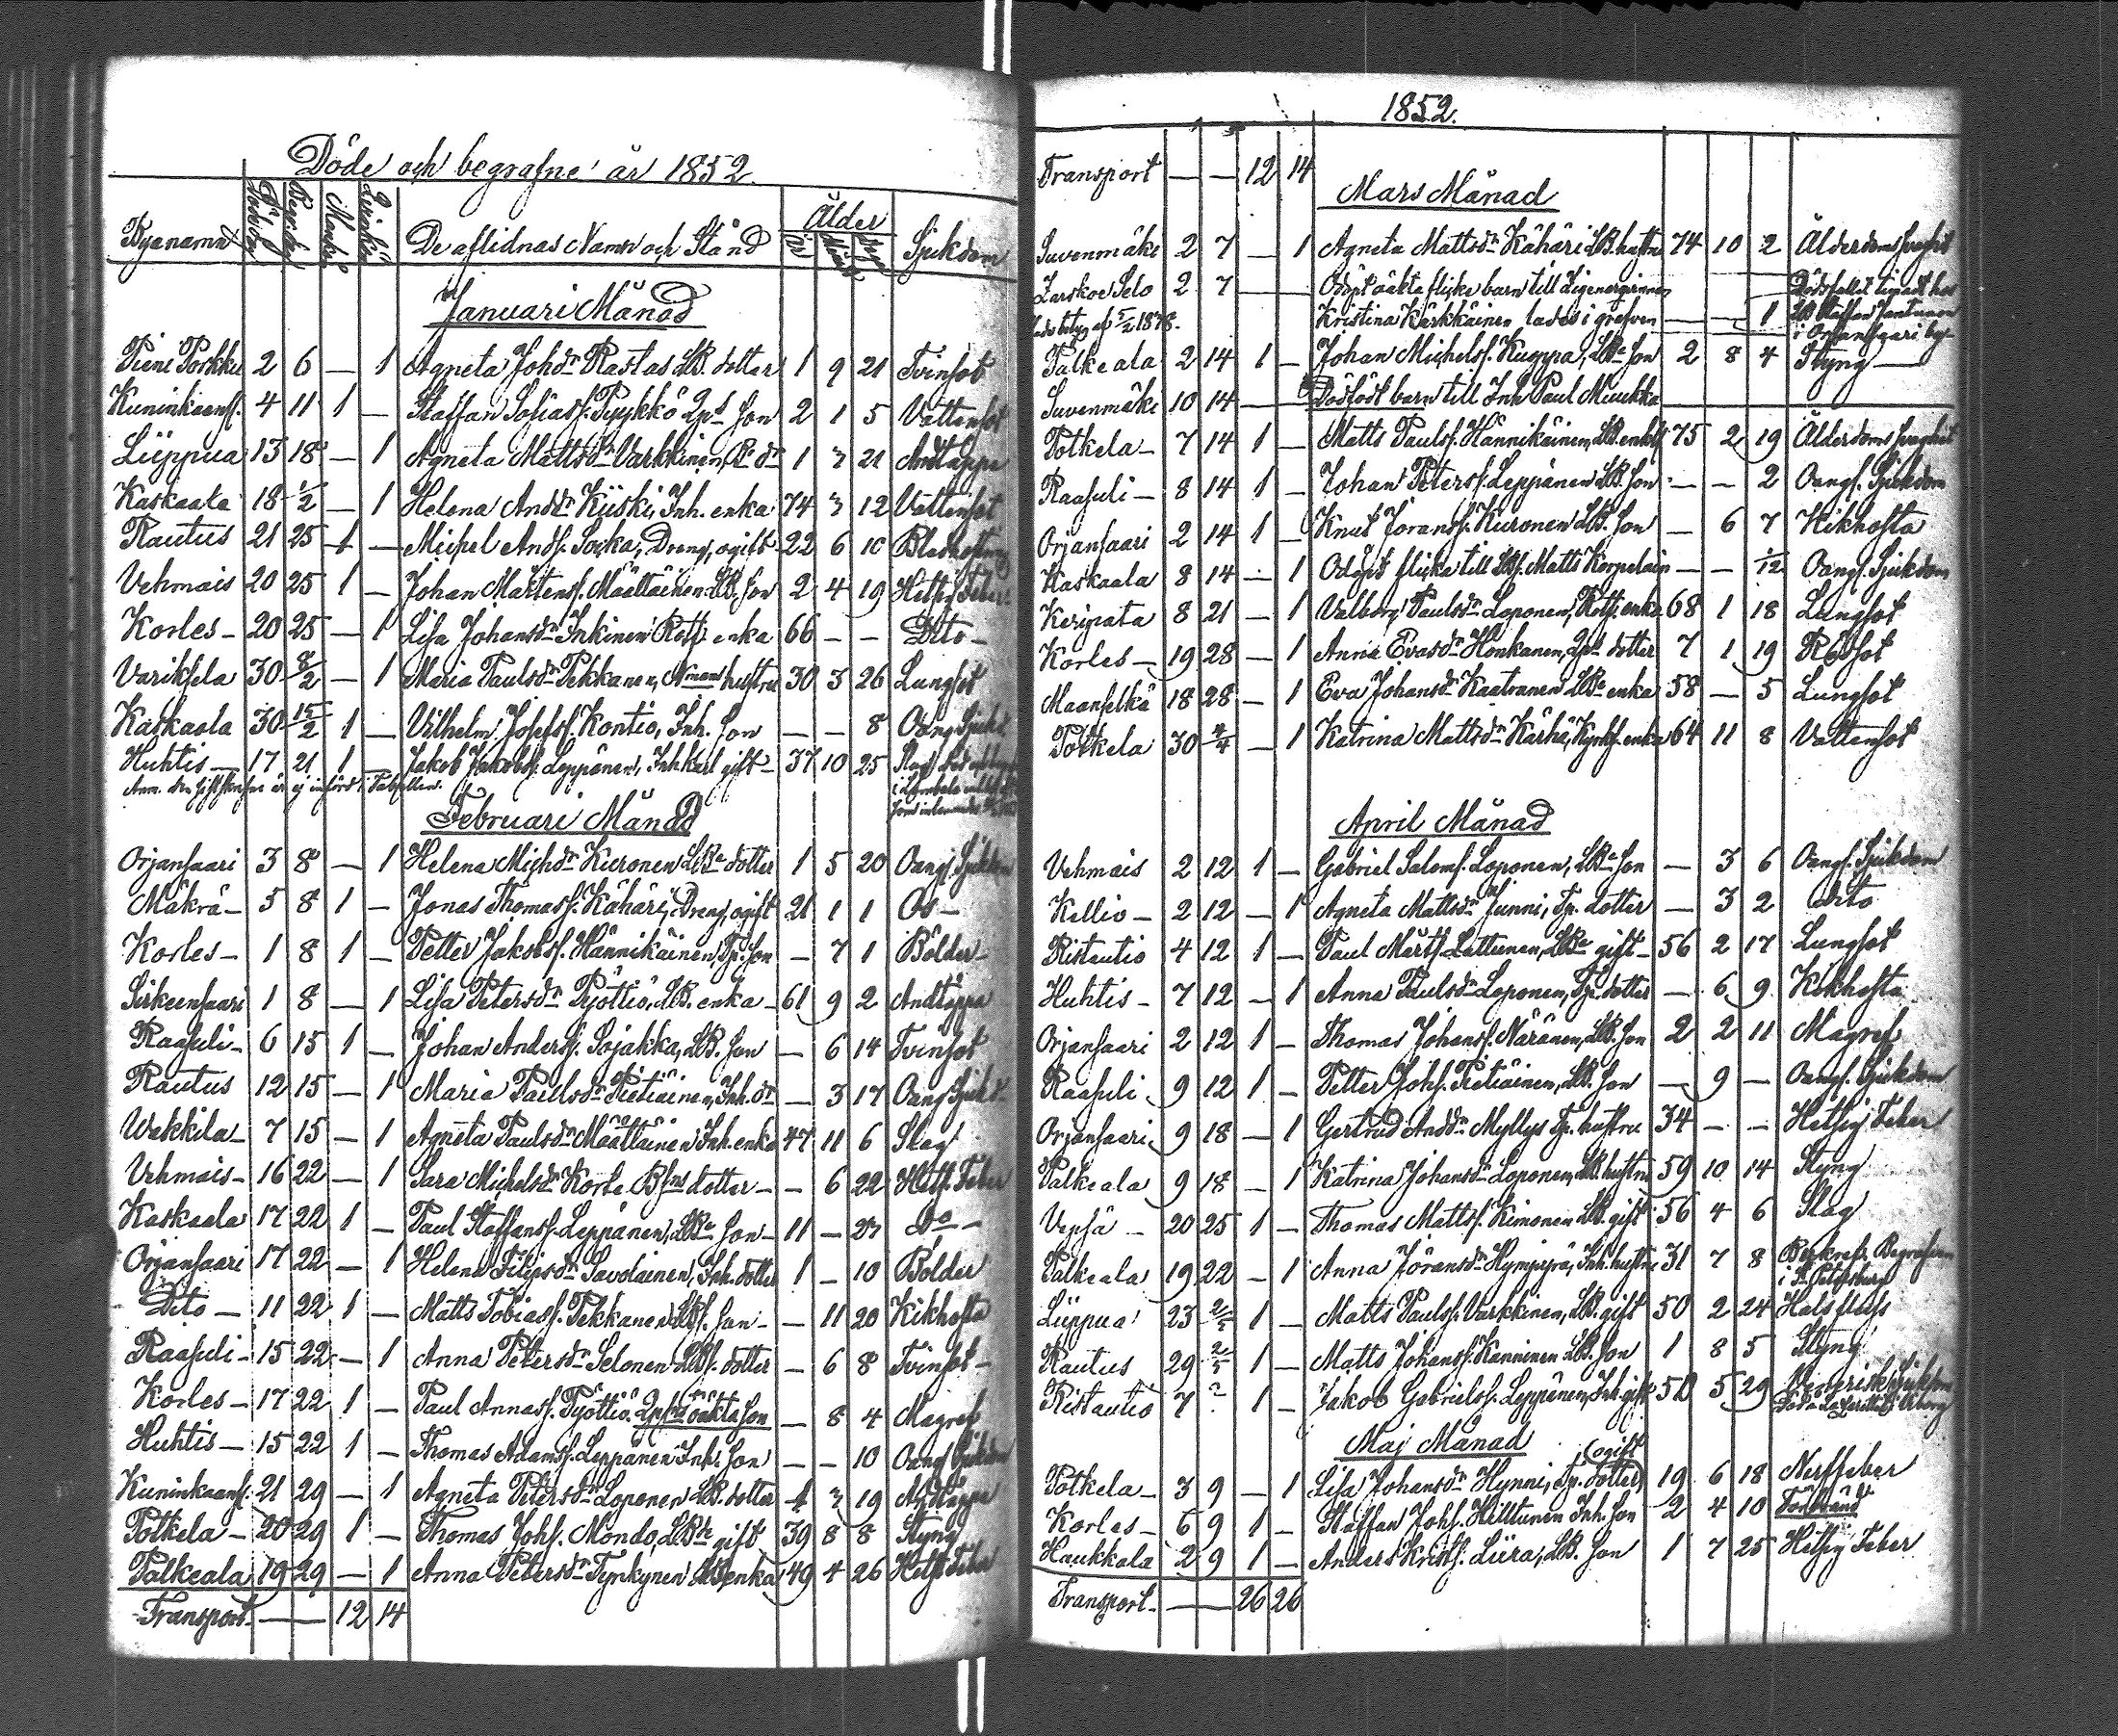 Döde och begrafne år 1852.
Byanamn Döds dag Begr. dag Mankön Qvinkön De aflidnas Namn och Stånd Ålder År Månad Dagar Sjukdom
Januari Månad
Pieni Porkku 2 6 — 1 Agneta Johdr Rastas LB. dotter 1 9 21 Tvinsot
Kuninkaans. 4 11 1 — Staffan Sofiass. Pyykkö Qps son 2 1 5 Vattensot
Liippua 13 18 — 1 Agneta Mattsdr Varkkinen, dr 1 3 21 Andtäppa
Kaskaala 18 1/2 — 1 Helena Andr Kiiski, Inh. enka 74 3 12 Vattensot
Rautus 21 25 1 — Michel Ands. Soika, Dreng, ogift 22 6 10
Vehmais 20 25 1 — Johan Mårtens. Määttäinen LB. son 2 4 19 Hets. Feber
Korles — 20 25 — 1 Lisa Johansdr Inkinen Rotf. enka 66 — — Dito —
Variksela 30 8/2 — 1 Maria Paulsdr Pekkanen, hustru 30 3 26 Lungsot
Kaskaala 30 15/2 1 — Vilhelm Josefss. Kontio, Inh. son — — 8 Oang. Sjukd.
Huhtis — 17 21 1 — Jakob Jakobss. Leppänen, Inh karl gift — 37 10 25 Slag
Anm. är ej införd i Tabellen.
Februari Månad
Orjansaari 3 8 — 1 Helena Michdr Kuronen LBr dotter 1 5 20 Oang. Sjukdom
Mäkrä — 5 8 1 — Jonas Thomass. Kähäri, Dreng, ogift 21 1 1 Os —
Korles — 1 8 1 — Petter Jakobss. Hännikäinen, Tp. son — 7 1 Bölder —
Sirkeensaari 1 8 — 1 Lisa Petersdr Pyöttiö, LB. enka — 61 9 2 Andtäppa
Raasuli — 6 15 1 — Johan Anderss. Sojakka, LB. son — 6 14 Tvinsot
Rautus 12 15 — 1 Maria Paulsdr Pietiäinen, Inh. dr — 3 17 Oang. Sjukd.
Wakkila — 7 15 — 1 Agneta Paulsdr Määttäinen Inh. enka 47 11 6 Slag
Vehmais — 16 22 — 1 Sara Michelsdr Korte dotter — — 6 22 Hets. Feber
Kaskaala 17 22 1 — Paul Staffanss. Leppänen, LBr son — 11 — 27 Do —
Orjansaari 17 22 — 1 Helena Filipsdr Savolainen, Inh. dotter 1 — 10 Bölder
Dito — 11 22 1 — Matts Tobiass. Pekkanen LBs. son — — 11 20 Kikhosta
Raasuli — 15 22 — 1 Anna Petersdr Selonen LBs. dotter — 6 8 Tvinsot —
Korles — 17 22 1 — Paul Annass. Pyöttiö Qps oäkta son — 8 4 Magref
Huhtis — 15 22 1 — Thomas Adamss. Leppänen Inh. son — — 10 Oang. Sjukdom
Kuninkaans. 21 29 — 1 Agneta Petersdr Loponen LB. dotter 1 3 19 Andtäppa
Potkela — 20 29 1 — Thomas Johs. Mondo, LBde gift 39 8 8 Styng
Palkeala 19 29 — 1 Anna Petersdr Tynkynen LB enka 49 4 26 Hets. Feber
Transport — — 12 14
1852.
Transport — — 12 14
Mars Månad
Suvenmäki 2 7 — 1 Agneta Mattsdr Kähäri LB. hustru 74 10 2 Ålderdomssvaghet
Zarskoe Selo 2 7 — Odöpt oäkta flicke barn till
betyg af 5/2 1878. Kristina Kärkkäinen lades i grafven — — 1
Dödsfallet timadt hos
LB Staffan Jantunen
i Orjansaari by —
Palkeala 2 14 1 — Johan Michelss. Kuappa, LBr son 2 8 4 Styng —
Suvenmäki 10 14 — Dödfödt barn till Inh Paul Muukka
Potkela — 7 14 1 — Matts Paulss. Hännikäinen, LB. enkl. 75 2 19 Ålderdomssvaghet
Raasuli — 8 14 1 — Johan Peterss. Leppänen LB. son — — 2 Oang. Sjukdom
Orjansaari 2 14 1 — Knut Jöranss. Kuronen LB. son — 6 7 Kikhosta
Kaskaala 8 14 — 1 Odöpt flicka till LBs. Matts Korpelain — — 1/12 Oang. Sjukdom
Keripata 8 21 — 1 Valborg Paulsdr Loponen, Rotf. enka 68 1 18 Lungsot
Korles — 19 28 — 1 Anna Evasdr Honkanen, Qps dotter 7 1 19 Rödsot
Maanselkä 18 28 — 1 Eva Johansdr Kaatranen LBr enka 58 — 5 Lungsot
Potkela 30 4/4 — 1 Katrina Mattsdr Kärhä, Kyrkf. enka 64 11 8 Vattensot
April Månad
Vehmais 2 12 1 — Gabriel Saloms. Loponen, LBr son — 3 6 Oang. Sjukdom
Kellio — 2 12 — 1 Agneta Mattsdr Junni, Tp. dotter — 3 2 dito
Ristautio 4 12 1 — Paul Mårts. Lattunen, LBr gift — 56 2 17 Lungsot
Huhtis — 7 12 — 1 Anna Paulsdr Loponen, Tp. dotter — 6 9 Kikhosta
Orjansaari 2 12 1 — Thomas Johanss. Näränen, LB. son 2 2 11 Magref
Raasuli 9 12 1 — Petter Johs. Pietiäinen, LB. son — 9 — Oang. Sjukdom
Orjansaari 9 18 — 1 Gertrud Anddr Myllys Tp. hustru 34 — — Hetsig Feber
Palkeala 9 18 — 1 Katrina Johansdr Loponen, LB. hustru 59 10 14 Styng
Vepsä — 20 25 1 — Thomas Mattss. Kimonen LB. gift 56 4 6 Slag
Palkeala 19 22 — 1 Anna Jöransdr Hympyrä, Inh. hustru 31 7 8 Begrafven
i St. Petersburg
Liippua 23 2/5 1 — Matts Paulss. Varkkinen, LB. gift 50 2 24 Halsfluss
Rautus 29 2/5 1 — Matts Johanss. Kanninen LB. son 1 8 5 Styng
Ristautio 7 ? 1 — Jakob Gabrielss. Leppänen, Inh gift 50 5 29 Venerisk Sjukdom
Död å Lazarettet i Viborg
Maj Månad
Potkela — 3 9 — 1 Lisa Johansdr Hynni, Tp. dotter (ogift 19 6 18 Nerffeber
Korles — 6 9 1 — Staffan Johs. Hilttunen Inh. son 2 4 10 Torrvärk
Haukkala 2 9 1 — Anders Krists. Liira, LB. son 1 7 25 Hetsig Feber
Transport — — 26 26